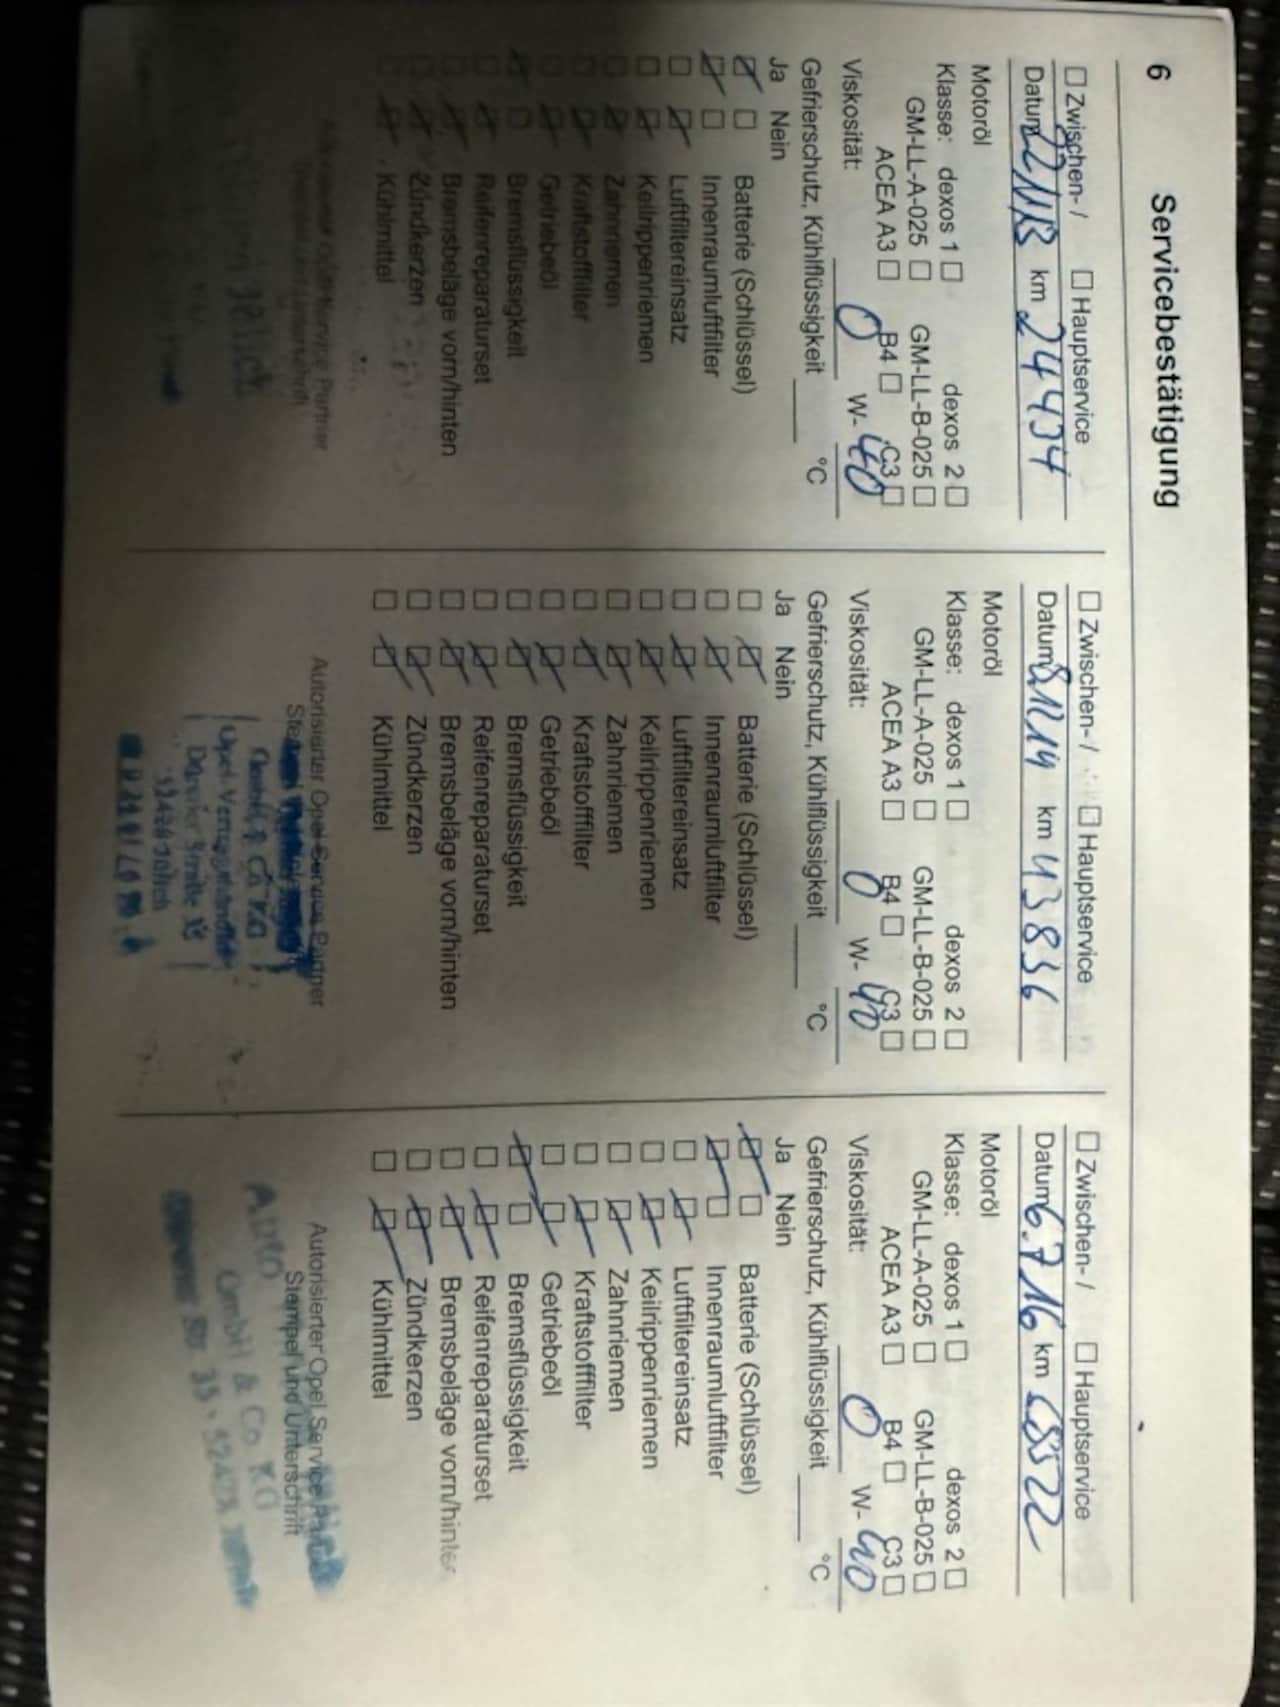 6 Servicebestätigung
Zwischen- / Hauptservice
Datum km 24434
Motoröl
Klasse: dexos 1 dexos 2
GM-LL-A-025 GM-LL-B-025
ACEA A3 B4 C3
Viskosität: 0 W- 40
Gefrierschutz, Kühlflüssigkeit °C
Ja Nein
Batterie (Schlüssel)
Innenraumluftfilter
Luftfiltereinsatz
Keilrippenriemen
Zahnriemen
Kraftstofffilter
Getriebeöl
Bremsflüssigkeit
Reifenreparaturset
Bremsbeläge vorn/hinten
Zündkerzen
Kühlmittel
Zwischen- / Hauptservice
Datum km 43836
Motoröl
Klasse: dexos 1 dexos 2
GM-LL-A-025 GM-LL-B-025
ACEA A3 B4 C3
Viskosität: 0 W- 40
Gefrierschutz, Kühlflüssigkeit °C
Ja Nein
Batterie (Schlüssel)
Innenraumluftfilter
Luftfiltereinsatz
Keilrippenriemen
Zahnriemen
Kraftstofffilter
Getriebeöl
Bremsflüssigkeit
Reifenreparaturset
Bremsbeläge vorn/hinten
Zündkerzen
Kühlmittel
Autorisierter Opel Service Partner
Zwischen- / Hauptservice
Datum 6.7.16 km 68522
Motoröl
Klasse: dexos 1 dexos 2
GM-LL-A-025 GM-LL-B-025
ACEA A3 B4 C3
Viskosität: 0 W- 40
Gefrierschutz, Kühlflüssigkeit °C
Ja Nein
Batterie (Schlüssel)
Innenraumluftfilter
Luftfiltereinsatz
Keilrippenriemen
Zahnriemen
Kraftstofffilter
Getriebeöl
Bremsflüssigkeit
Reifenreparaturset
Bremsbeläge vorn/hinten
Zündkerzen
Kühlmittel
Autorisierter Opel Service
Stempel und Unterschrift
Auto
GmbH & Co. KG